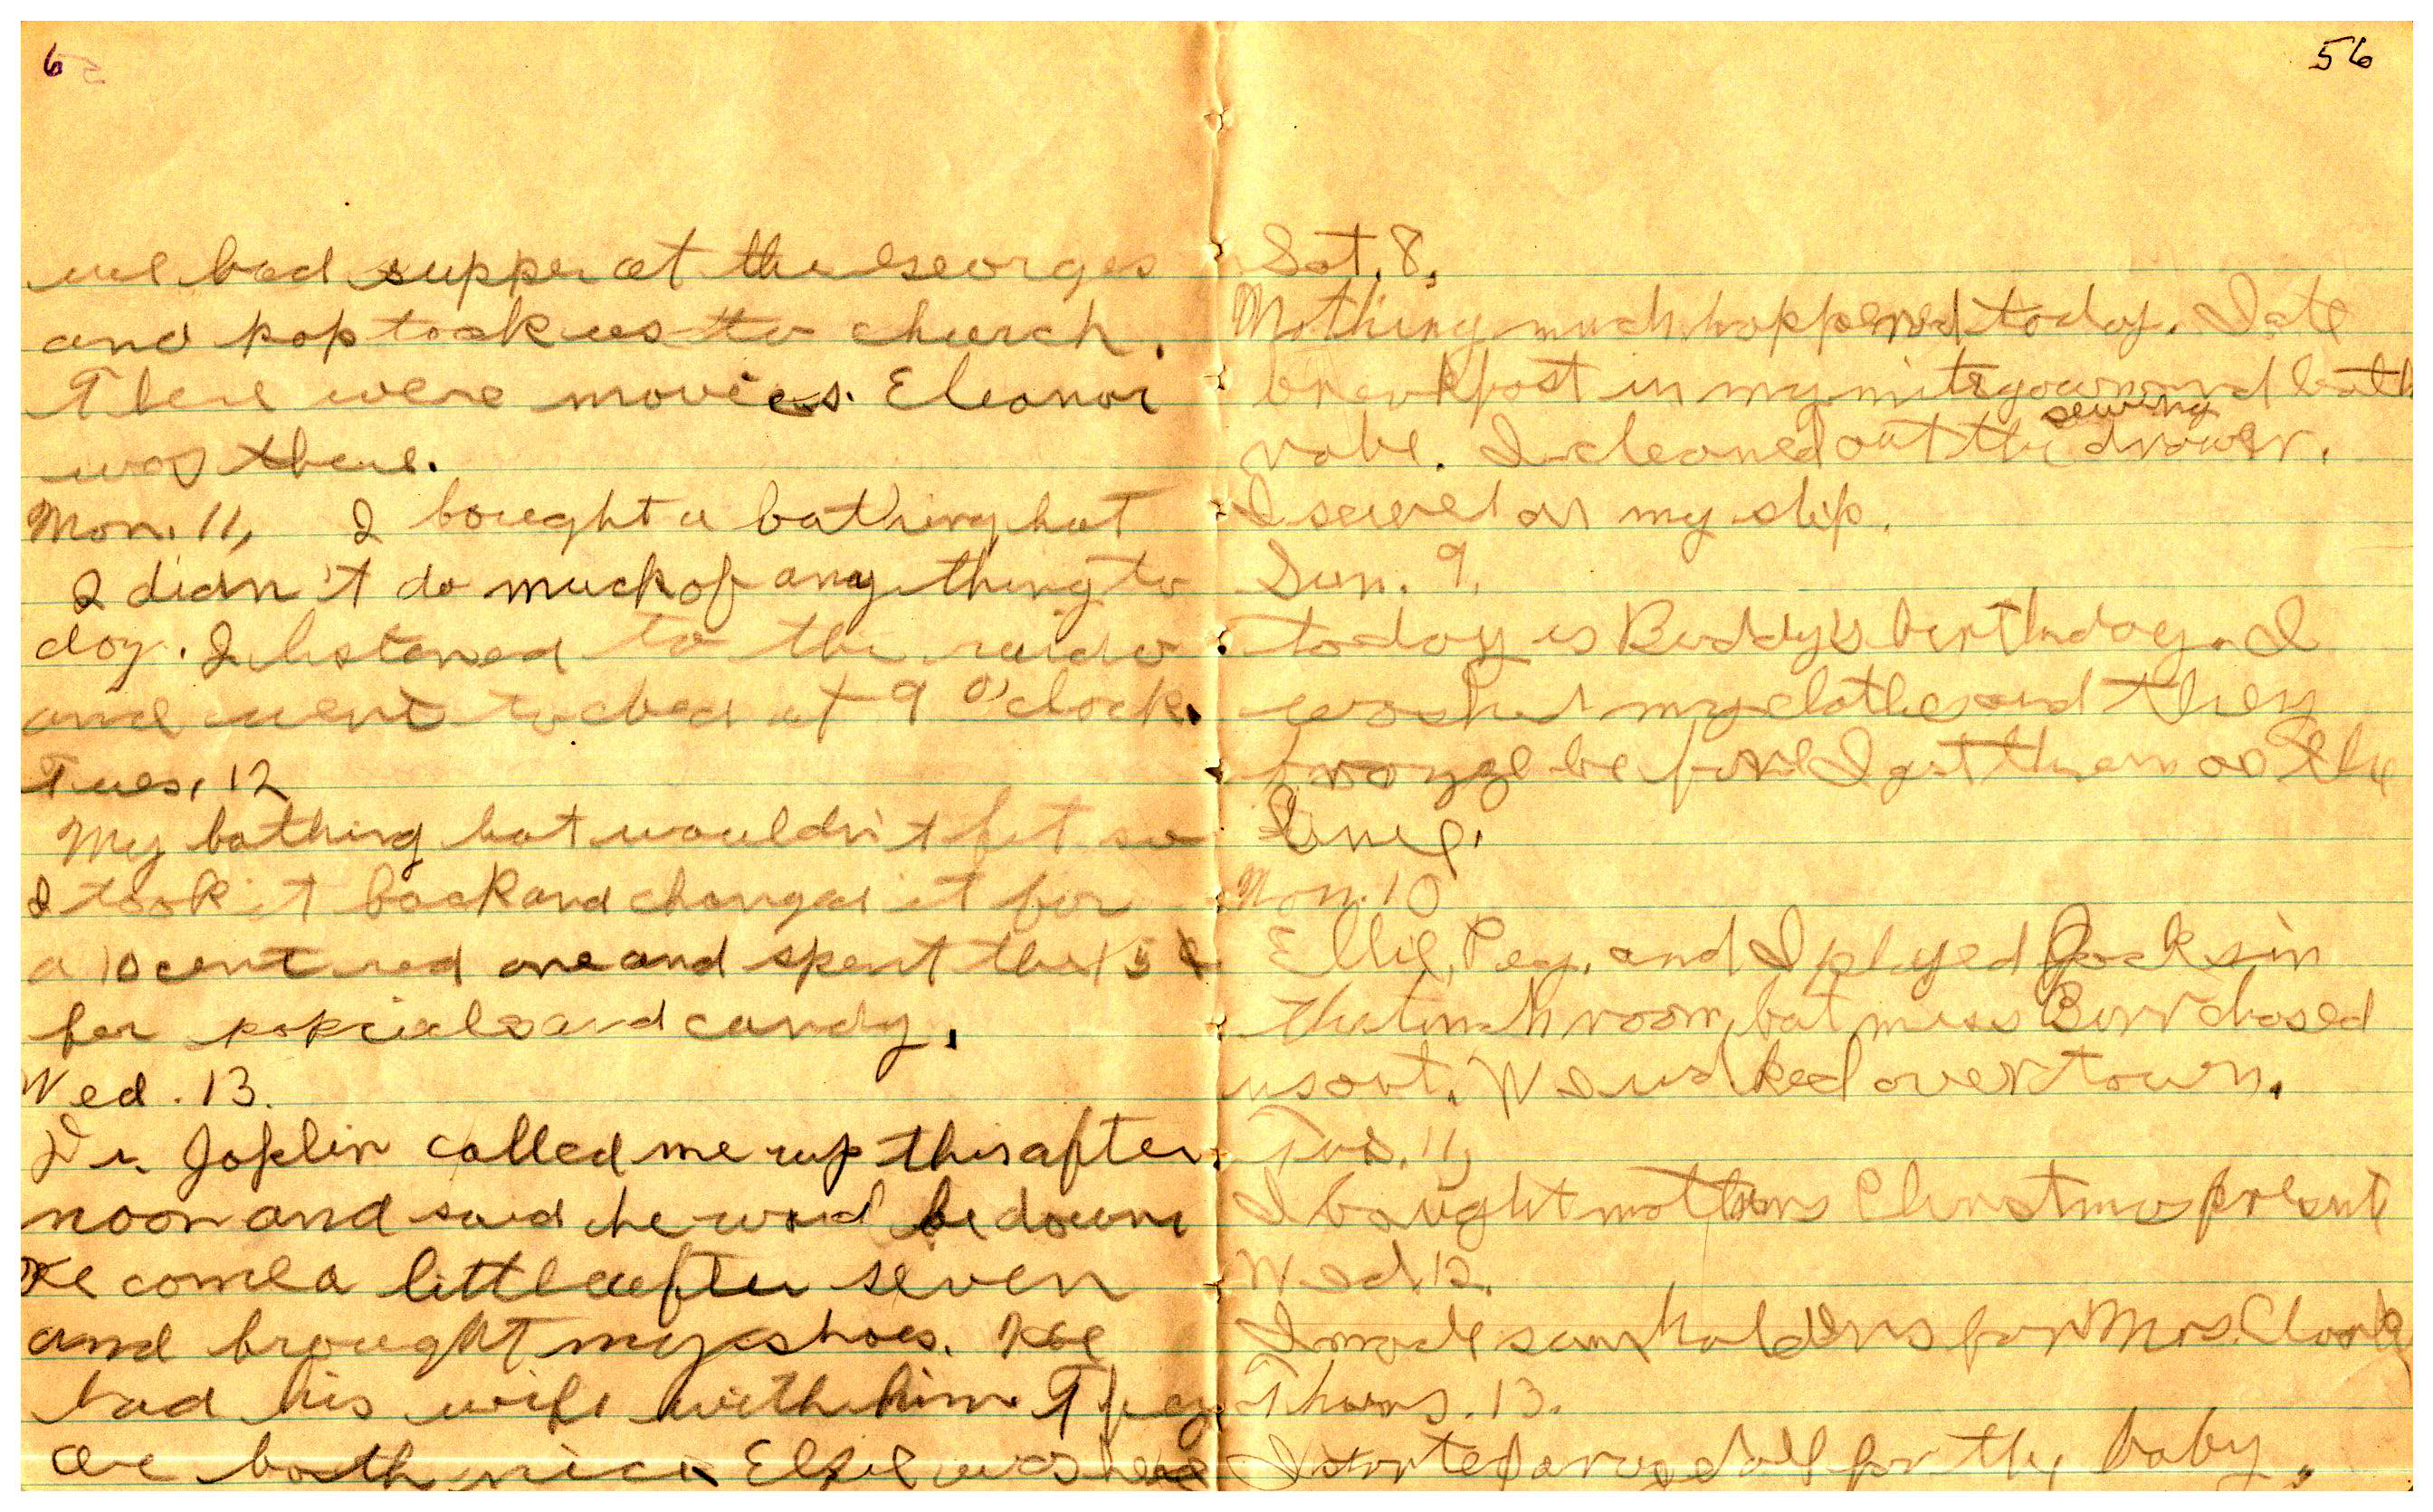 6
we had supper at the Georges
and pop took us to church.
There were movies. Eleanor
was there.
Mon. 11, I bought a bathing hat
I didn't do much of any thing to
day. I listened to the raido
and went to bed at 9 O'clock.
Tues, 12
My bathing hat wouldn't fit so
I took it back and changed it for
a 10 cent red one and spent the 15¢
for popcicals and candy.
Wed. 13.
Dr. Joplin called me up this after
noon and said he woud be down
He come a little after seven
and brought my shoes. He
had his wife with him. They
are both nice Elsie was here
56
Sat. 8.
Nothing much happened today. I ate
breakfast in my nitegown and bath
robe. I cleaned out the sewing drawer.
I sewed on my slip.
Sun. 9.
today is Buddy's birthday. I
washed my clothes and they
froze before I got them on the
line.
Mon. 10
Ellie, Peg, and I played Jacks in
the lunch room, but miss Burr chased
us out. We walked over town.
Tus. 11,
I bought mothers Christmas present
Wed. 12.
I made some holders for Mrs. Clark
Thurs. 13.
I started a rag doll for the baby.